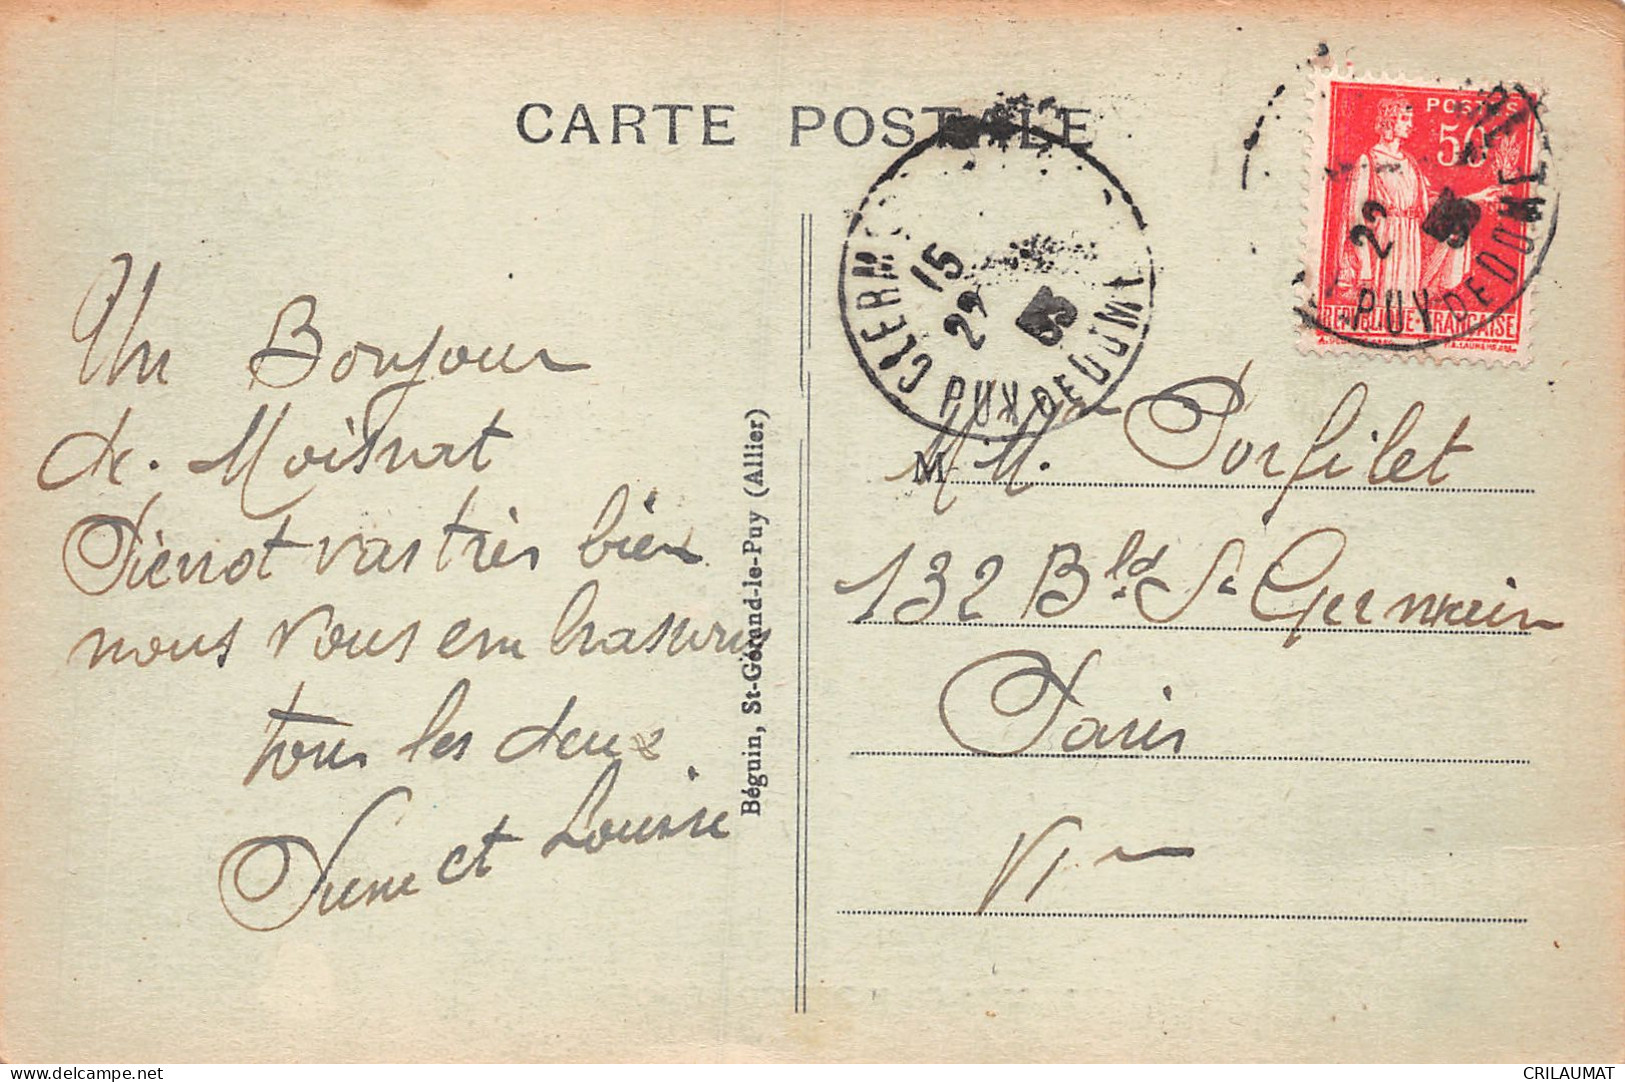 CARTE POSTALE
Un Bonjour
de. Moisnat
Pierrot va très bien
nous vous embrassons
tous les deux
et Louise
Béguin, St-Gérand-le-Puy (Allier)
CLERM
15
22
35
PUY DE DOME
POSTES
50
22
35
PUY DE DOME
REPUBLIQUE FRANÇAISE
M M. Porfilet
132 Bld St Germain
Paris
VI
delcampe.net
CRILAUMAT